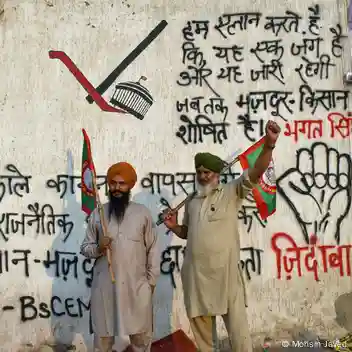 हम एलान करते है
कि यह एक जंग है
और यह जारी रहेगी
जब तक मज़दूर-किसान
शोषित है। भगत सिं
काले का वापस
राजनैतिक
ान-मज़दू ता ज़िंदाबा
-BSCEM
© Mohsin Javed